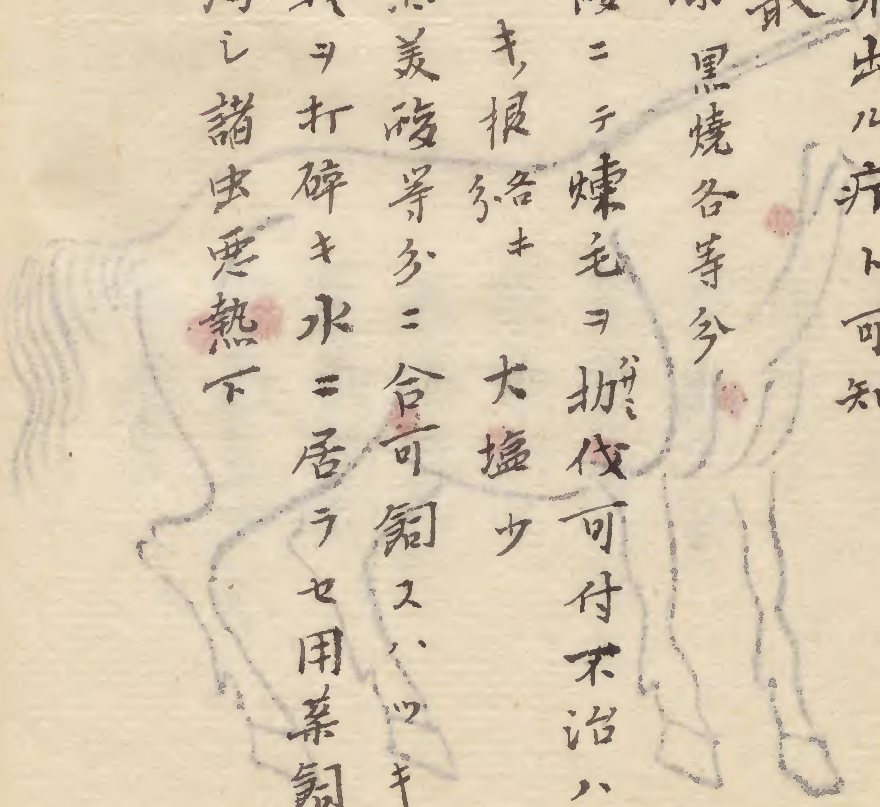 出ル疔ト可知
散
黒焼各等分
ニテ煉毛ヲ拗ハサミ伐可付不治ハ
キ根各分キ 大塩少
美酸等分ニ合可飼スハツキ
ヲ打碎キ水ニ居ラセ用薬飼
シ諸虫悪熱下